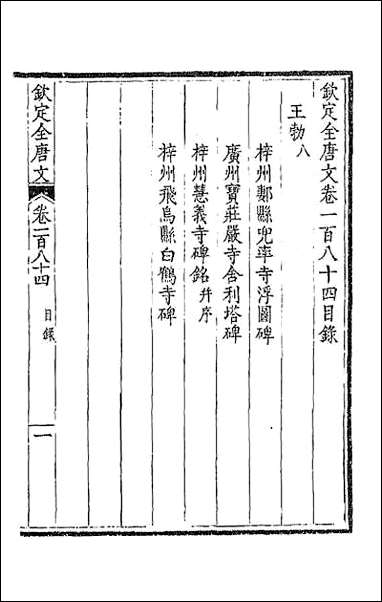 欽定全唐文卷一百八十四目錄
王勃八
梓州郪縣兜率寺浮圖碑
廣州寶莊嚴寺舍利塔碑
梓州慧義寺碑銘并序
梓州飛烏縣白鶴寺碑
欽定全唐文 卷一百八十四 目錄 一